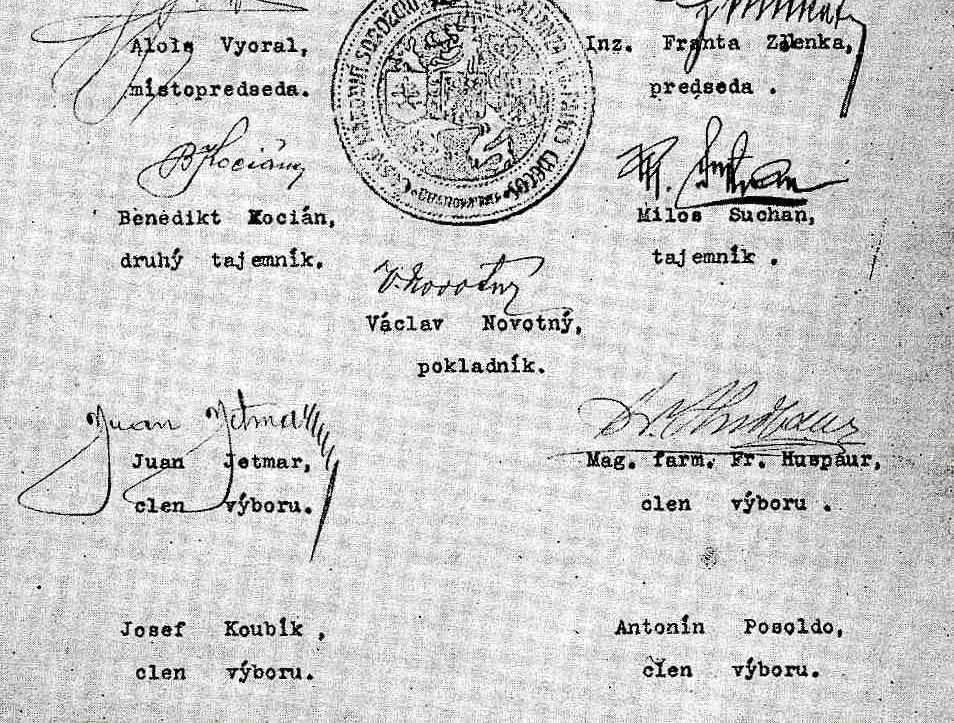 Alois Vyoral,
místopredseda.
Inz. Franta Zdenka,
predseda .
B Kocián
Benedikt Kocián,
druhý tajemník.
Milos Suchan,
tajemník .
V. Novotný
Václav Novotný,
pokladník.
Juan Jetmar
Juan Jetmar,
clen výboru.
Mag. farm. Fr. Huspaur,
clen výboru .
Josef Koubík ,
clen výboru.
Antonín Posoldo,
člen výboru.